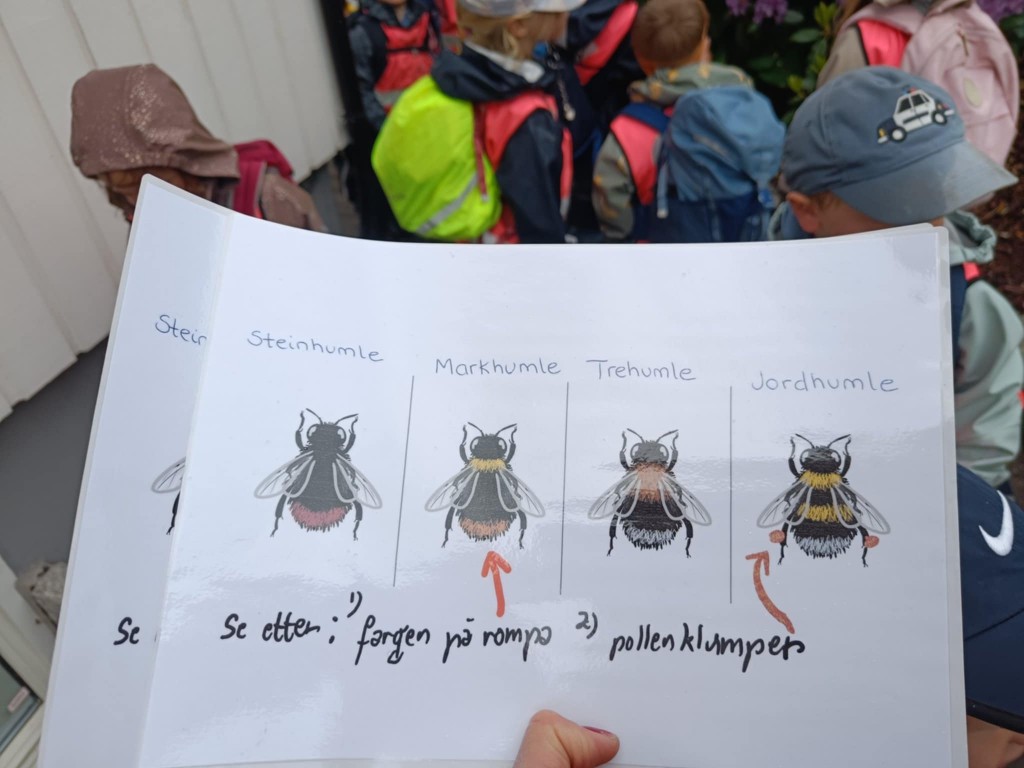 Stein
Steinhumle
Markhumle
Trehumle
Jordhumle
Se
Se etter: 1) fargen på rompa 2) pollenklumper